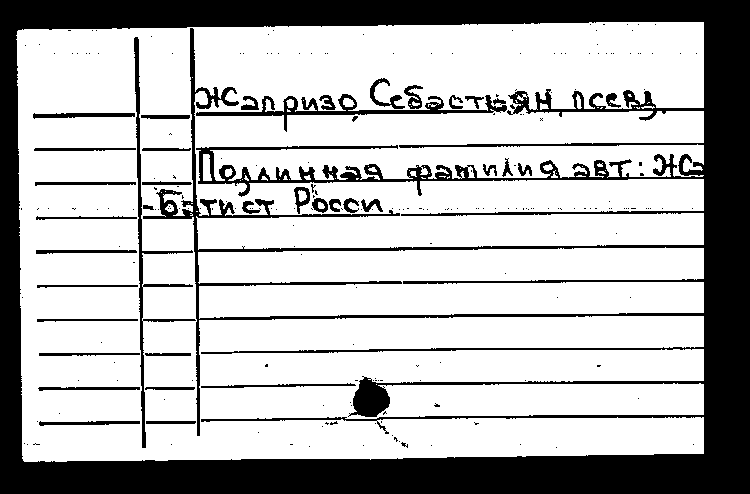 Жапризо, Себастьян, псевд.
Подлинная фамилия авт.: Жа
-Батист Росси.